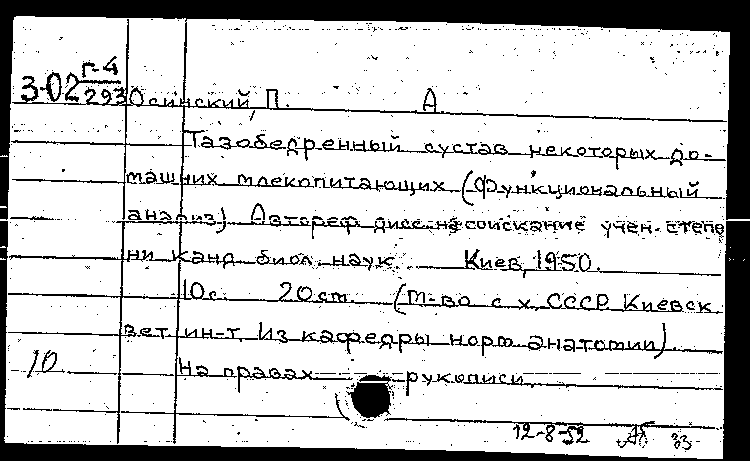 Г-4
3-02 293 Осинский, П. А
Тазобедренный сустав некоторых до-
машних млекопитающих (функциональный
анализ). Автореф. дисс. на соискание учен. степе
ни канд. биол. наук. Киев, 1950.
10с. 20см. (М-во с. х. СССР. Киевск.
вет. ин-т. Из кафедры норм. анатомии).
10 На правах рукописи.
12-8-52 33